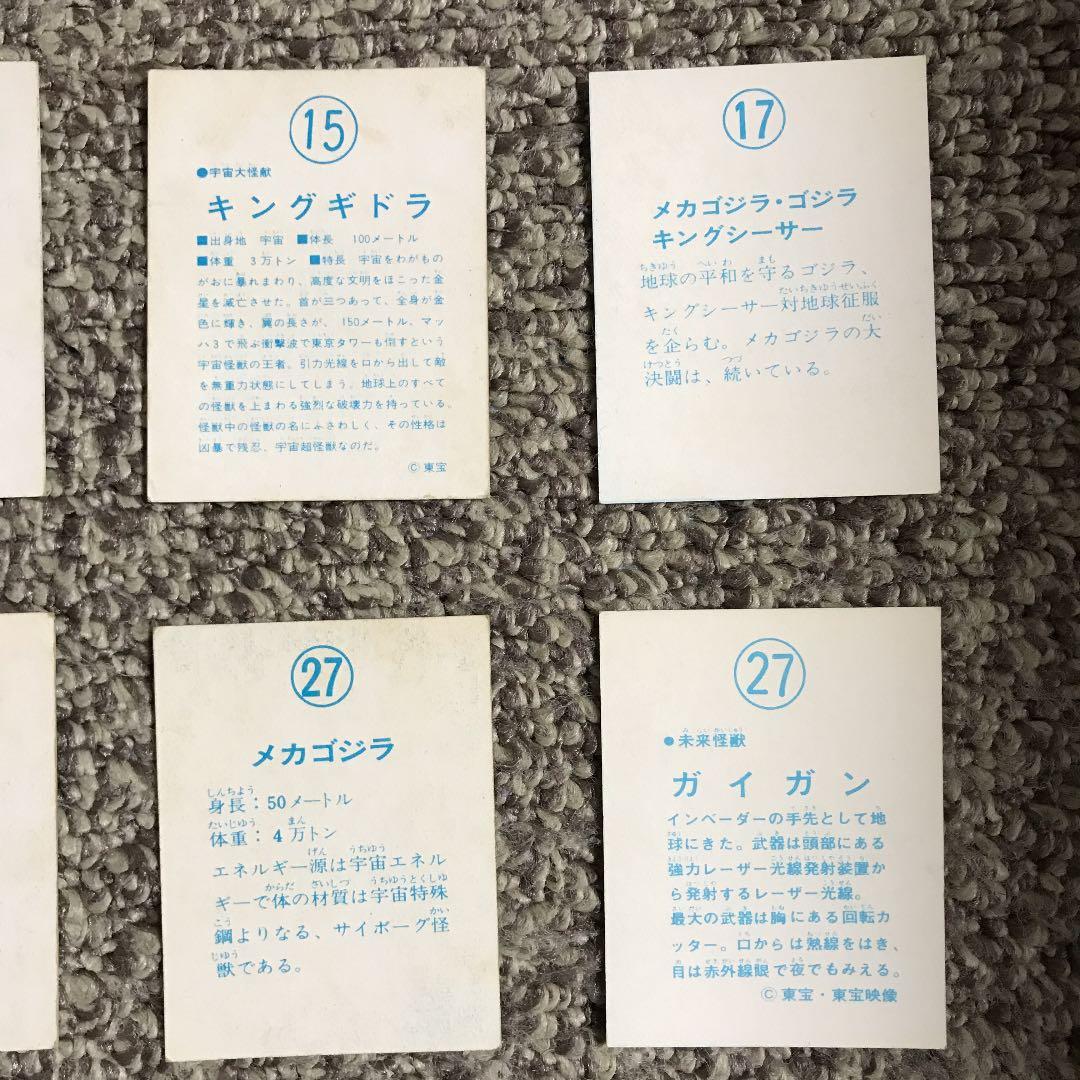 15
●宇宙大怪獣
キングギドラ
■出身地 宇宙 ■体長 100メートル
■体重 3万トン ■特長 宇宙をわがもの
がおに暴れまわり、高度な文明をほこった金
星を滅亡させた。首が三つあって、全身が金
色に輝き、翼の長さが、150メートル、マッ
ハ3で飛ぶ衝撃波で東京タワーも倒すという
宇宙怪獣の王者。引力光線を口から出して敵
を無重力状態にしてしまう。地球上のすべて
の怪獣を上まわる強烈な破壊力を持っている。
怪獣中の怪獣の名にふさわしく、その性格は
凶暴で残忍、宇宙超怪獣なのだ。
Ⓒ東宝
17
メカゴジラ・ゴジラ
キングシーサー
ちきゅう へいわ まも
地球の平和を守るゴジラ、
たいちきゅうせいふく
キングシーサー対地球征服
たく だい
を企らむ。メカゴジラの大
けつとう つづ
決闘は、続いている。
27
メカゴジラ
しんちよう
身長：50メートル
たいじゅう まん
体重：4万トン
げん うちゆう
エネルギー源は宇宙エネル
からだ ざいしつ うちゆうとくしゆ
ギーで体の材質は宇宙特殊
こう かい
鋼よりなる、サイボーグ怪
じゆう
獣である。
27
●未来怪獣
ガイガン
インベーダーの手先として地
球にきた。武器は頭部にある
強力レーザー光線発射装置か
ら発射するレーザー光線。
最大の武器は胸にある回転カ
ッター。口からは熱線をはき、
目は赤外線眼で夜でもみえる。
Ⓒ東宝・東宝映像